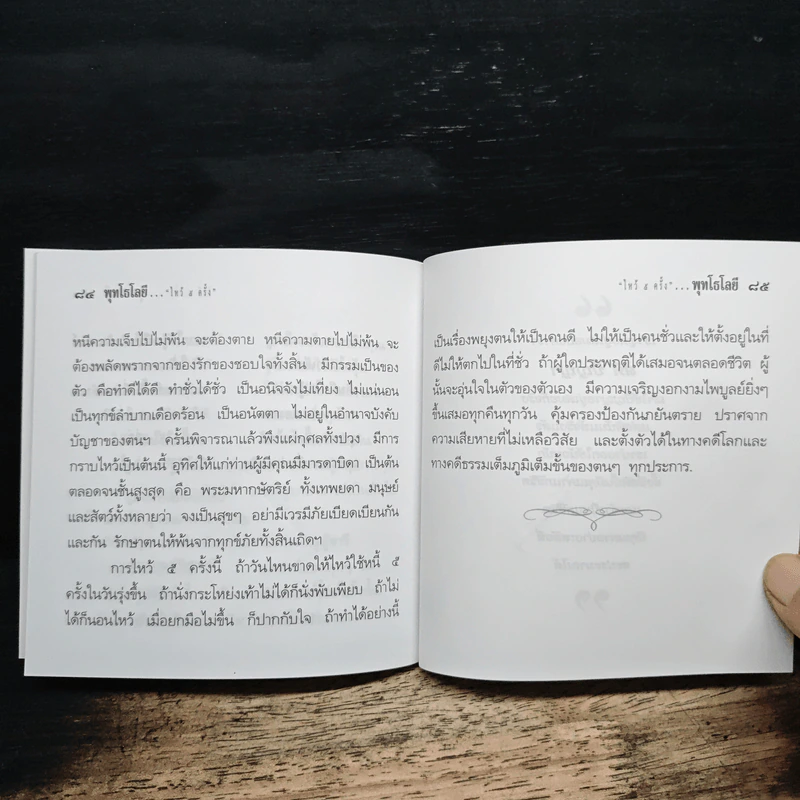 ๘๔ พุทโธโลยี..."ไหว้ ๕ ครั้ง"
หนีความเจ็บไปไม่พ้น จะต้องตาย หนีความตายไปไม่พ้น จะ
ต้องพลัดพรากจากของรักของชอบใจทั้งสิ้น มีกรรมเป็นของ
ตัว คือทำดีได้ดี ทำชั่วได้ชั่ว เป็นอนิจจังไม่เที่ยง ไม่แน่นอน
เป็นทุกข์ลำบากเดือดร้อน เป็นอนัตตา ไม่อยู่ในอำนาจบังคับ
บัญชาของตนฯ ครั้นพิจารณาแล้วพึงแผ่กุศลทั้งปวง มีการ
กราบไหว้เป็นต้นนี้ อุทิศให้แก่ท่านผู้มีคุณมีมารดาบิดา เป็นต้น
ตลอดจนชั้นสูงสุด คือ พระมหากษัตริย์ ทั้งเทพยดา มนุษย์
และสัตว์ทั้งหลายว่า จงเป็นสุขๆ อย่ามีเวรมีภัยเบียดเบียนกัน
และกัน รักษาตนให้พ้นจากทุกข์ภัยทั้งสิ้นเถิดฯ
การไหว้ ๕ ครั้งนี้ ถ้าวันไหนขาดให้ไหว้ใช้หนี้ ๕
ครั้งในวันรุ่งขึ้น ถ้านั่งกระโหย่งเท้าไม่ได้ก็นั่งพับเพียบ ถ้าไม่
ได้ก็นอนไหว้ เมื่อยกมือไม่ขึ้น ก็ปากกับใจ ถ้าทำได้อย่างนี้
"ไหว้ ๕ ครั้ง"...พุทโธโลยี ๘๕
เป็นเรื่องพยุงตนให้เป็นคนดี ไม่ให้เป็นคนชั่วและให้ตั้งอยู่ในที่
ดีไม่ให้ตกไปในที่ชั่ว ถ้าผู้ใดประพฤติได้เสมอจนตลอดชีวิต ผู้
นั้นจะอุ่นใจในตัวของตัวเอง มีความเจริญงอกงามไพบูลย์ยิ่งๆ
ขึ้นเสมอทุกคืนทุกวัน คุ้มครองป้องกันภยันตราย ปราศจาก
ความเสียหายที่ไม่เหลือวิสัย และตั้งตัวได้ในทางคดีโลกและ
ทางคดีธรรมเต็มภูมิเต็มชั้นของตนๆ ทุกประการ.